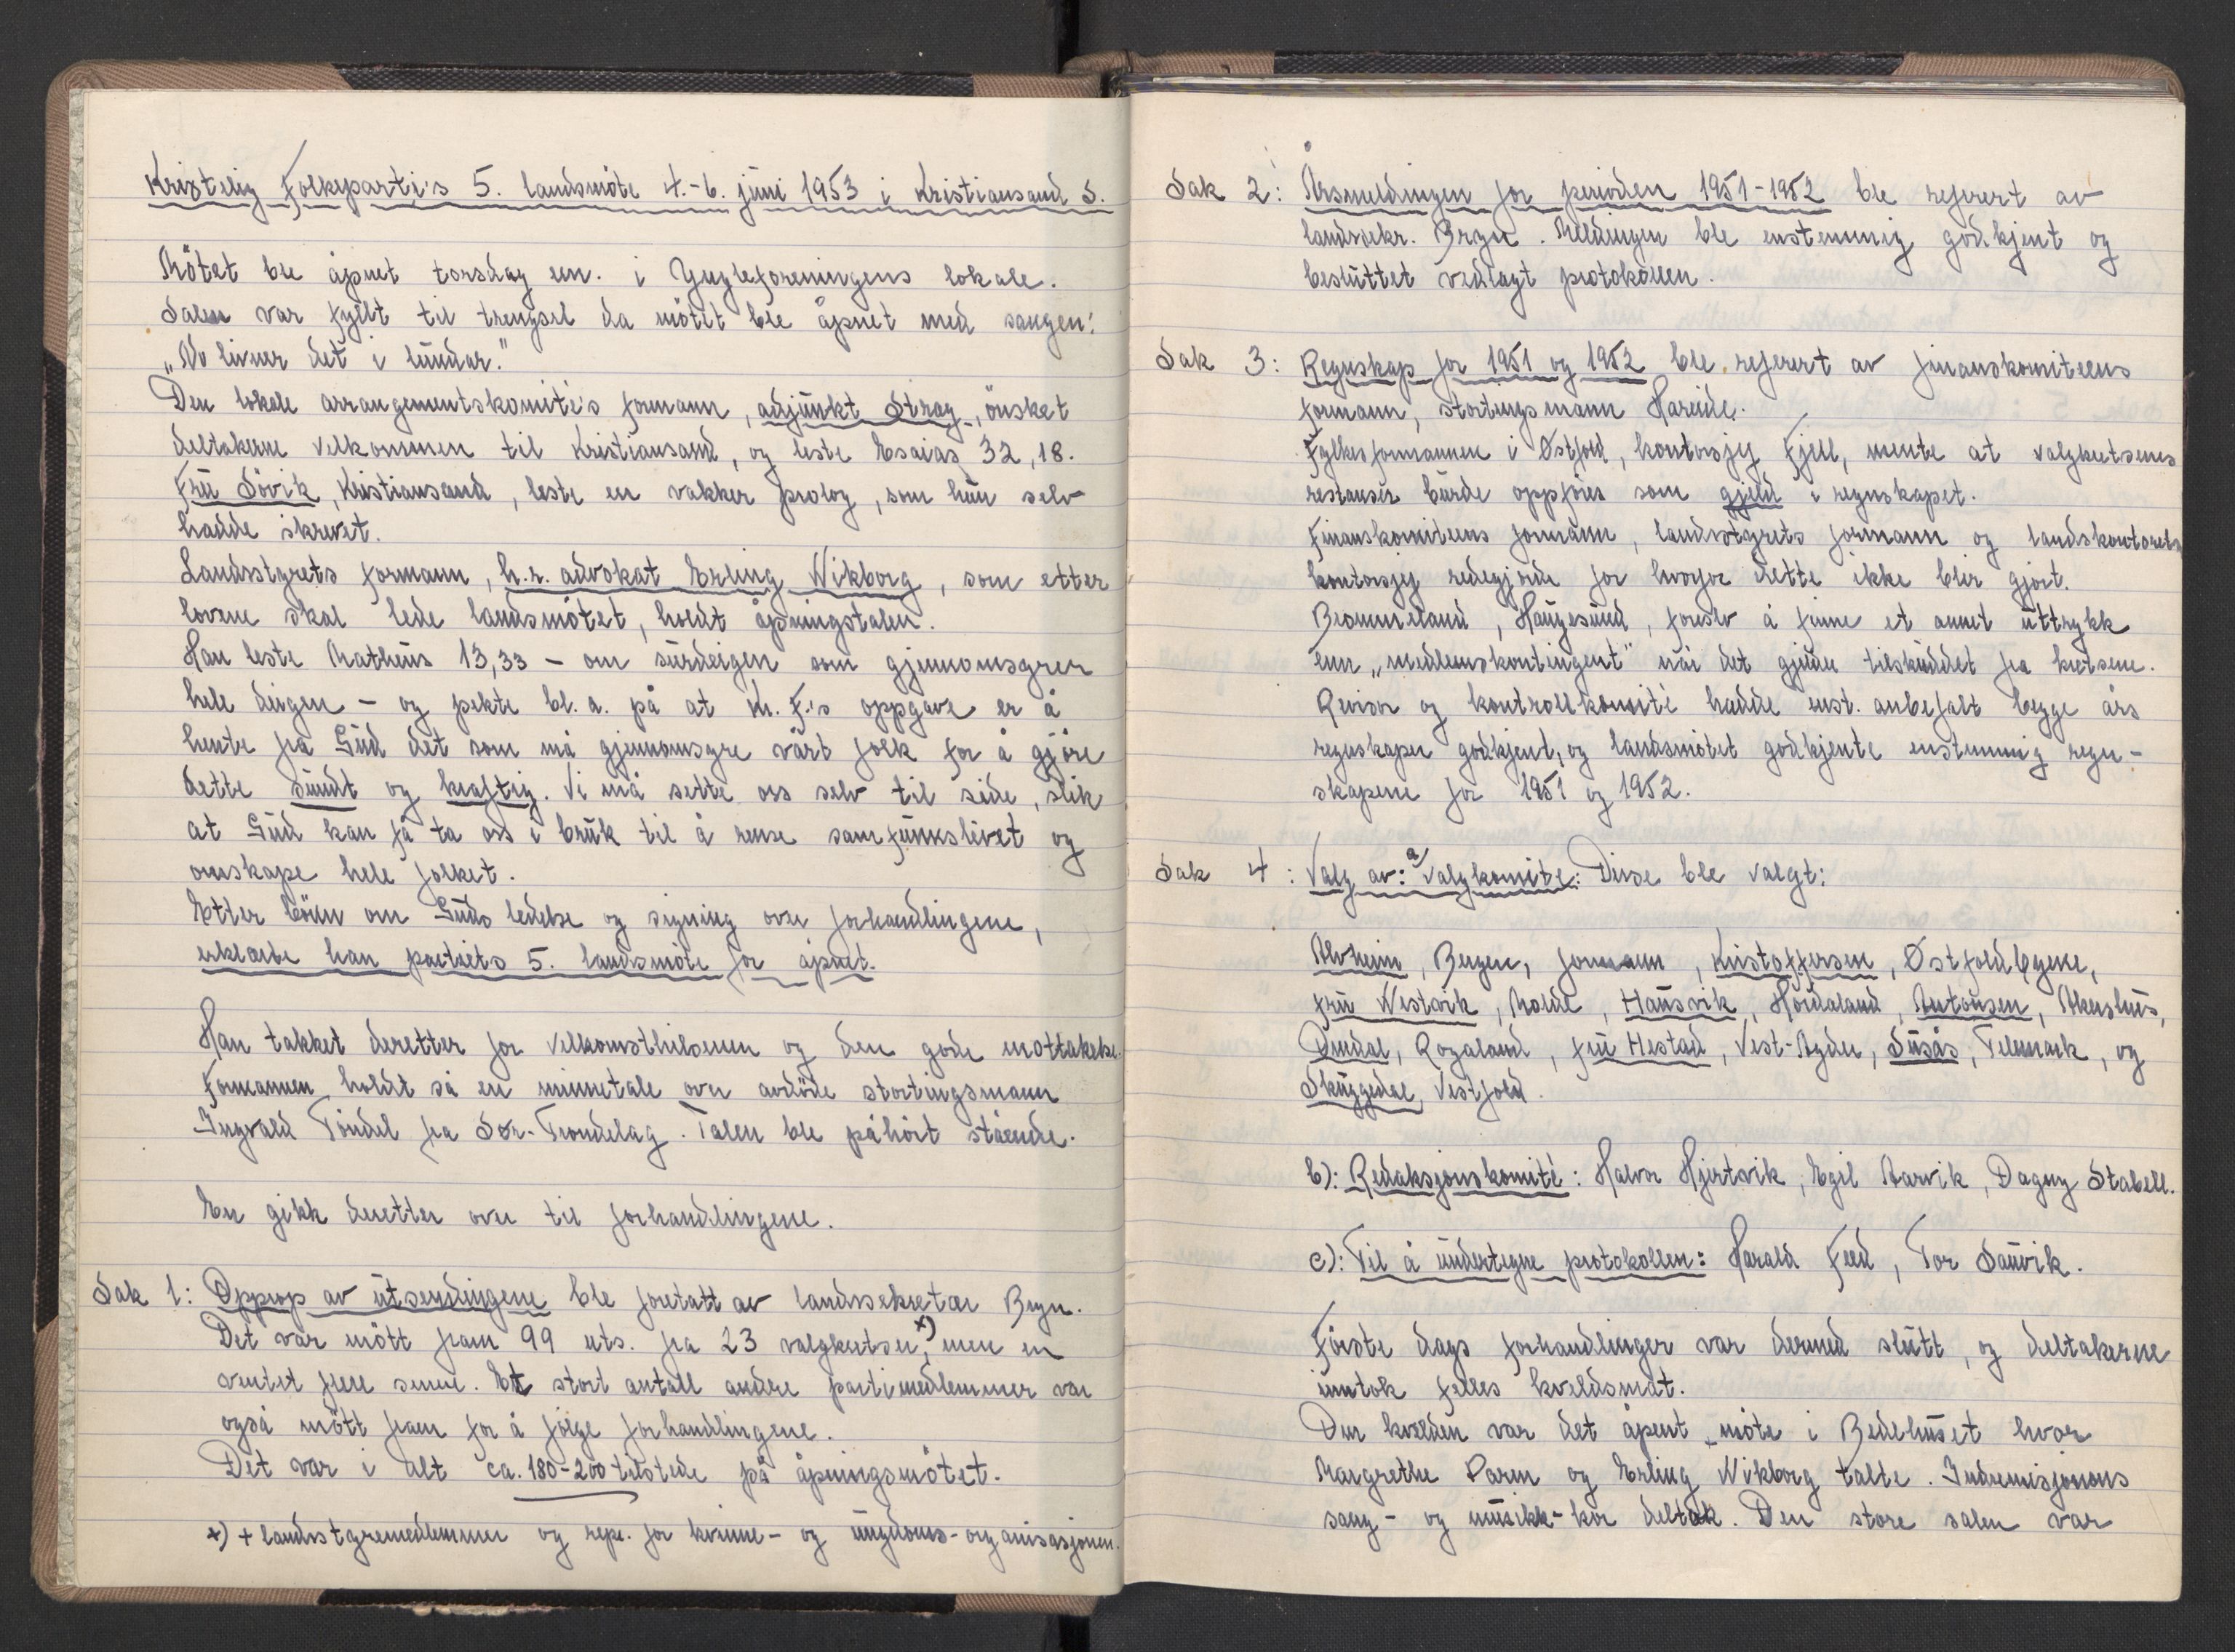 Kristelig Folkeparti's 5. landsmöte 4.-6. juni 1953 i Kristiansand S.
Mötet ble åpnet torsdag em. i Yngleforeningens lokale.
Salen var fyllt til trengsel da mötet ble åpnet med sangen:
„No livner det i lundar."
Den lokale arrangementskomité's formann, adjunkt Stray, önsket
deltakerne velkommen til Kristiansand, og leste Esaias 32,18.
Fru Sövik, Kristiansand, leste en vakker prolog, som hun selv
hadde skrevet.
Landsstyrets formann, h.r. advokat Erling Wikborg, som etter
lovene skal lede landsmötet, holdt åpningstalen.
Han leste Matheus 13,33 – om surdeigen som gjennomsyrer
hele deigen – og pekte bl. a. på at Kr. F.'s oppgave er å
hente fra Gud det som må gjennomsyre vårt folk for å gjöre
dette sundt og kraftig. Vi må sette oss selv til side, slik
at Gud kan få ta oss i bruk til å rense samfunnslivet og
omskape hele folket.
Etter bönn om Guds ledelse og signing over forhandlingene,
erklærte han partiets 5. landsmöte for åpnet.
Han takket deretter for velkomsthilsenen og den gode mottakelse.
Formannen holdt så en minnetale over avdöde stortingsmann
Ingvald Töndel fra Sör-Tröndelag. Talen ble påhört stående.
En gikk deretter over til forhandlingene.
Sak 1: Opprop av utsendingene ble foretatt av landssekretær Bryn.
Det var mött fram 99 uts. fra 23 valgkretser, x) men en
ventet flere senere. Et stort antall andre partimedlemmer var
også mött fram for å fölge forhandlingene.
Det var i alt ca. 180-200 tilstede på åpningsmötet.
x) + landsstyremedlemmer og repr. for kvinne- og ungdoms-organisasjonen.
Sak 2: Årsmeldingen for perioden 1951-1952 ble referert av
landssekr. Bryn. Meldingen ble enstemmig godkjent og
besluttet vedlagt protokollen.
Sak 3: Regnskap for 1951 og 1952 ble referert av finanskomiteens
formann, stortingsmann Hareide.
Fylkesformannen i Østfold, kontorsjef Fjell, mente at valgkretsens
restanser burde oppföres som gjeld i regnskapet.
Finanskomiteens formann, landsstyrets formann og landskontorets
kontorsjef redegjorde for hvorfor dette ikke blir gjort.
Brommeland, Haugesund, foreslo å finne et annet uttrykk
enn „medlemskontingent" når det gjelder tilskuddet fra kretsene.
Revisor og kontrollkomité hadde enst. anbefalt begge års
regnskaper godkjent, og landsmötet godkjente enstemmig regn-
skapene for 1951 og 1952.
Sak 4: Valg av: a) Valgkomite: Disse ble valgt:
Alvheim, Bergen, formann, Kristoffersen, Østfoldbyene,
fru Westvik, Molde, Hausvik, Hordaland, Antonsen, Akershus,
Omdal, Rogaland, fru Hestad, Vest-Agder, Susås, Telemark, og
Skuggedal, Vestfold.
b): Redaksjonskomité: Halvor Hjertvik, Egil Aarvik, Dagny Stabell.
c): Til å undertegne protokollen: Harald Feed, Tor Sauvik.
Förste dags forhandlinger var dermed slutt, og deltakerne
inntok felles kveldsmat.
Om kvelden var det åpent möte i Bedehuset hvor
Margrethe Parm og Erling Wikborg talte. Indremisjonens
sang- og musikk-kor deltok. Den store salen var